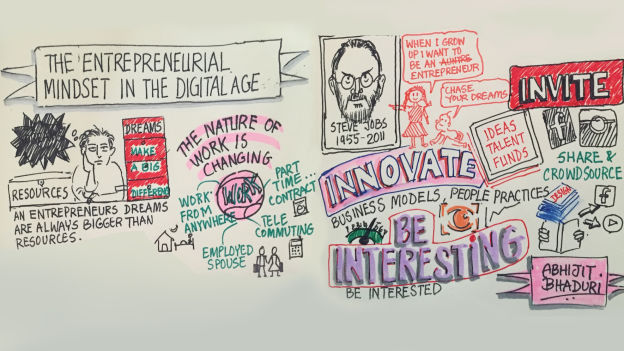 THE ENTREPRENEURIAL
MINDSET IN THE DIGITAL AGE
DREAMS
MAKE
A BIG
DIFFERENC
RESOURCES
AN ENTREPRENEURS DREAMS
ARE ALWAYS BIGGER THAN
RESOURCES.
THE NATURE OF
WORK IS
CHANGING
WORK
PART
TIME...
CONTRACT
WORK
FROM
ANYWHERE
TELE
COMMUTING
EMPLOYED
SPOUSE
STEVE JOBS
1955-2011
WHEN I GROW
UP I WANT TO
BE AN AUNTRE
ENTREPRENEUR
CHASE
YOUR DREAMS
IDEAS
TALENT
FUNDS
INVITE
SHARE &
CROWDSOURCE
INNOVATE
BUSINESS MODELS, PEOPLE PRACTICES
DESIGN
f
BE
INTERESTING
BE INTERESTED
ABHIJIT
BHADURI